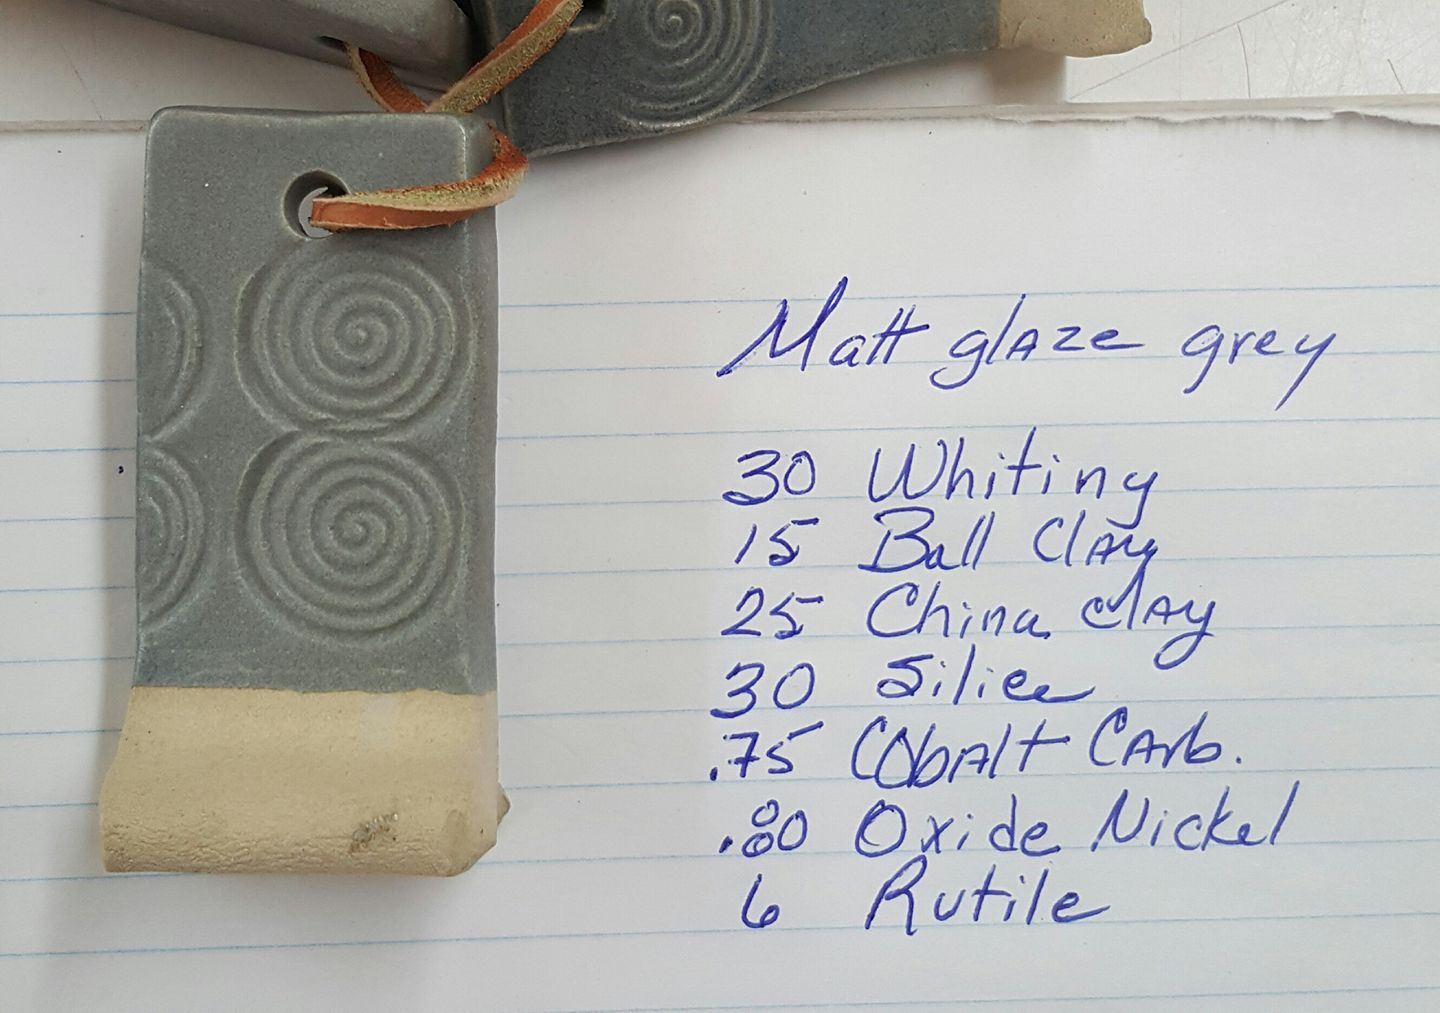 Matt glaze grey
30 Whiting
15 Ball Clay
25 China clay
30 Silice
.75 Cobalt Carb.
.80 Oxide Nickel
6 Rutile